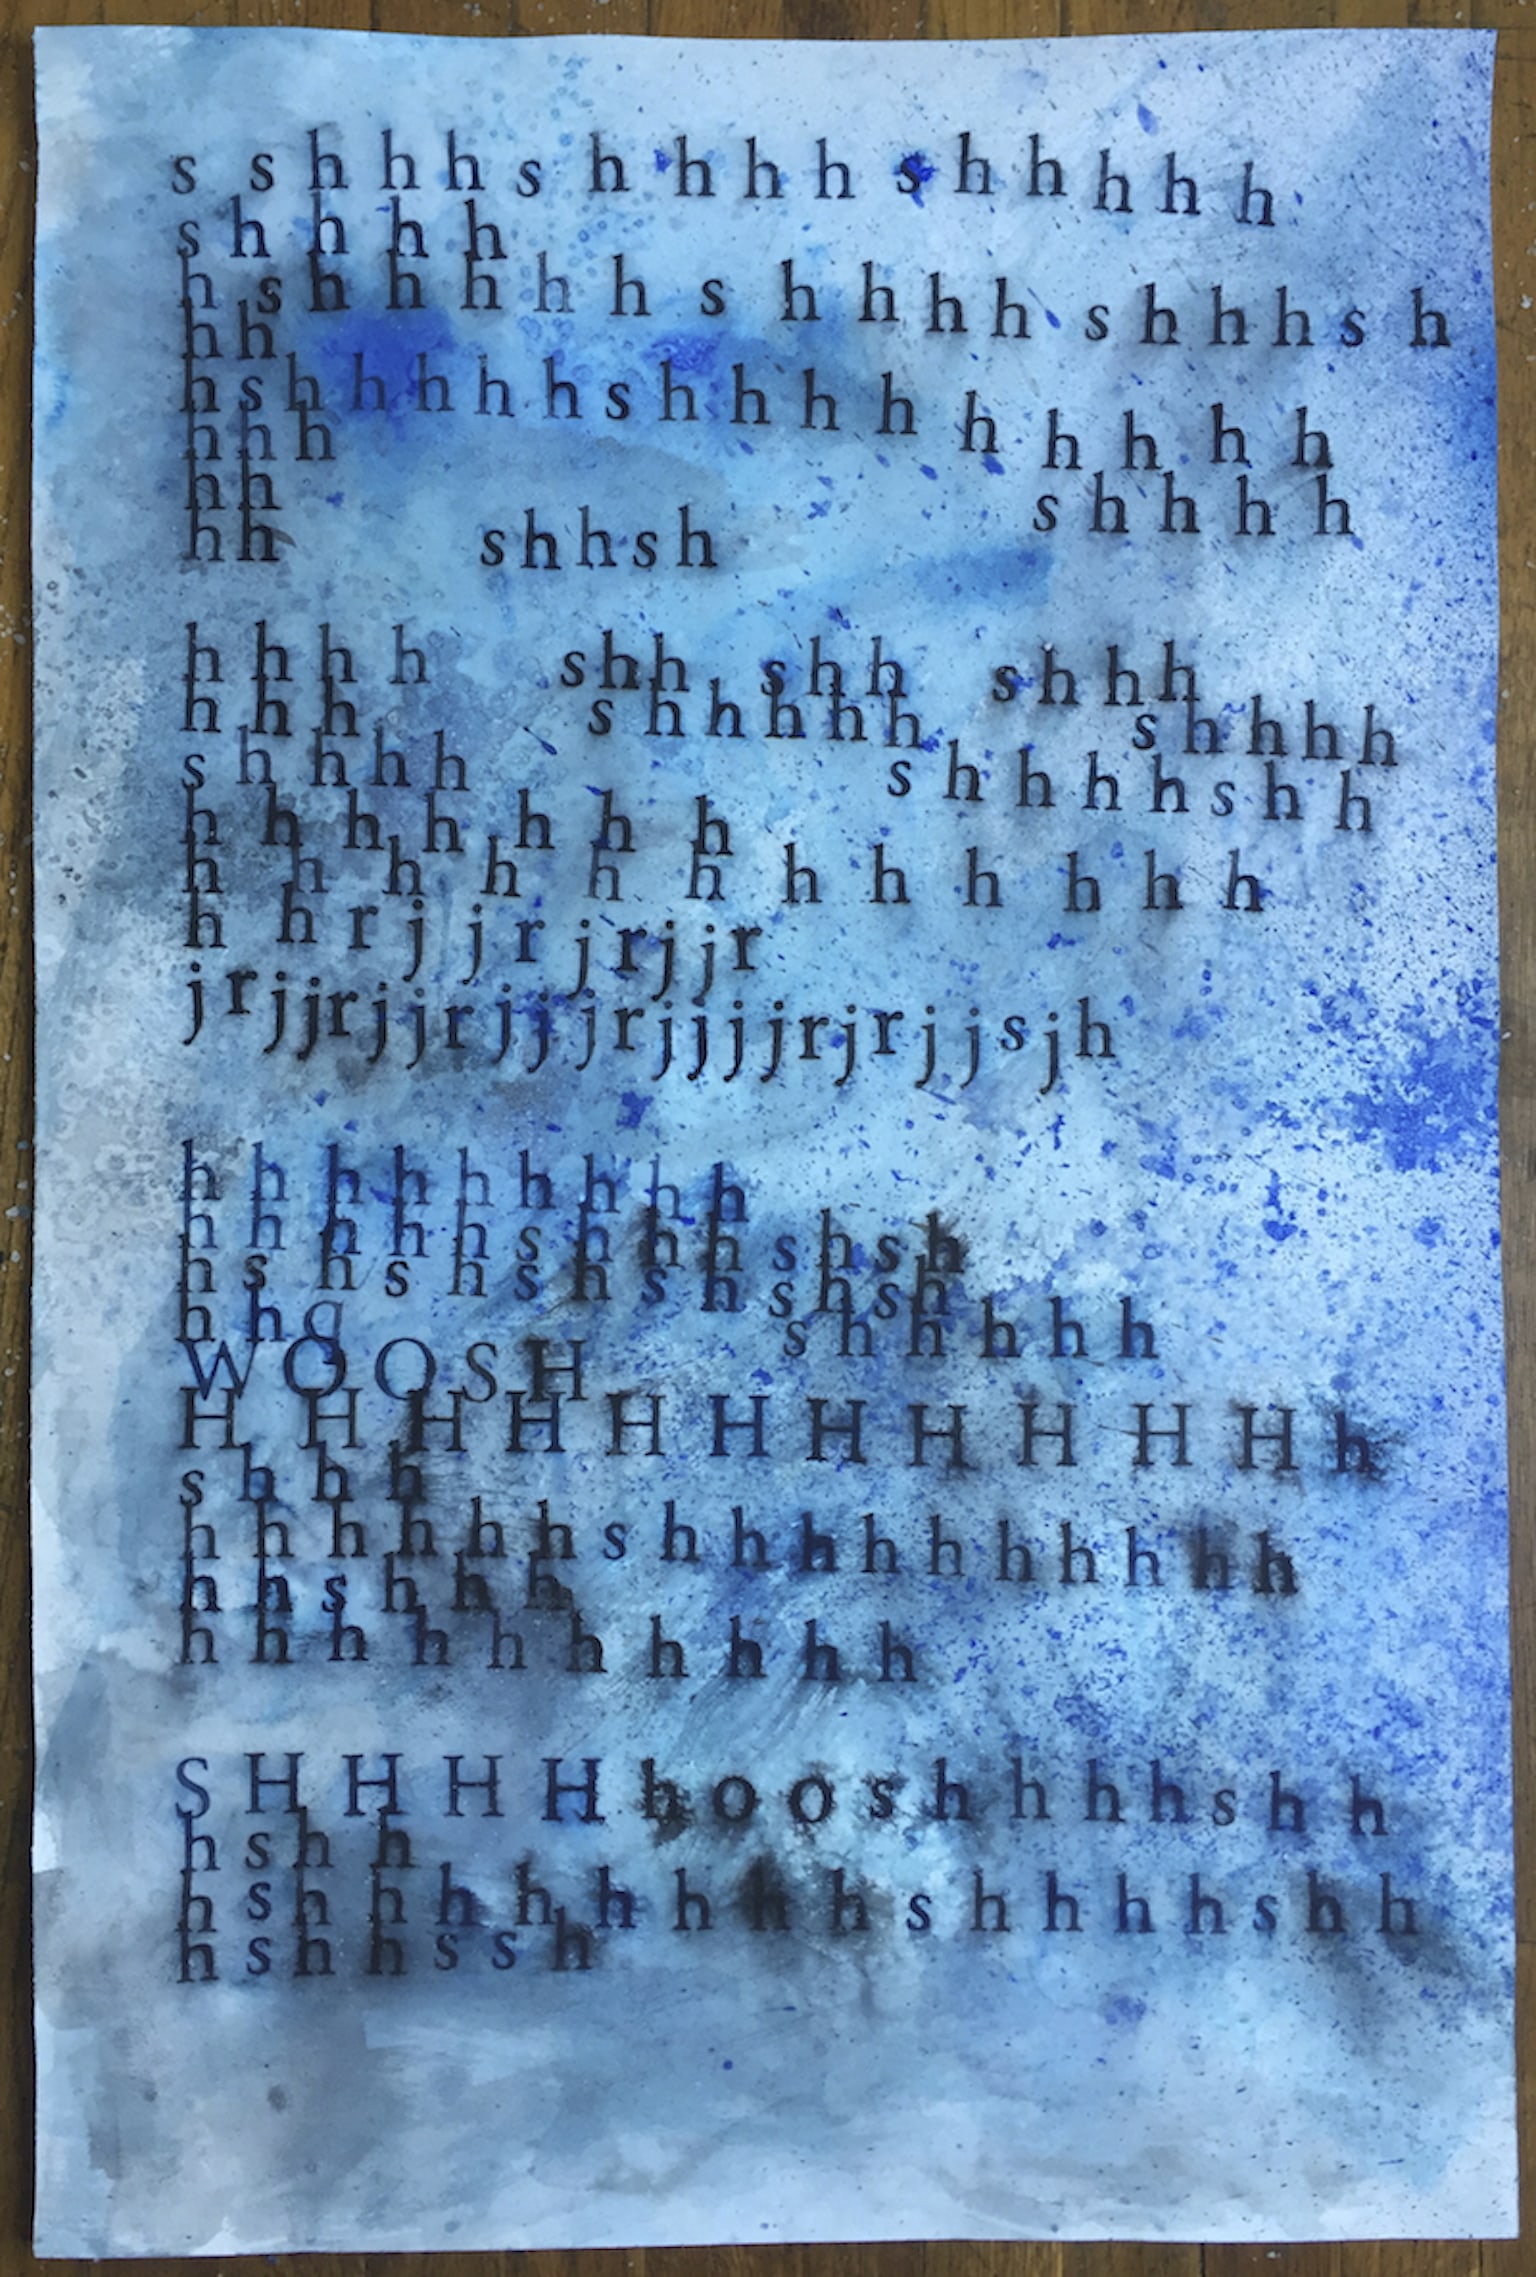 s s h h h s h h h h s h h h h h
s h h h h
h s h h h h h s h h h h s h h h s h
h h
h s h h h h h s h h h h h h h h h
h h h
h h s h h h h
h h s h h s h
h h h h s h h s h h s h h h
h h h s h h h h h s h h h h
s h h h h s h h h h s h h
h h h h h h h
h h h h h h h h h h h h
h h r j j r j r j j r
j r j j r j j r j j j r j j j j r j r j j s j h
h h h h h h h h h
h h h h h s h h h s h s h
h s h s h s h s h s h s h
h h g s h h h h h
W O O S H
H H H H H H H H H H H h
s h h h
h h h h h h s h h h h h h h h h h
h h s h h h
h h h h h h h h h h
S H H H H h o o s h h h h s h h
h s h h
h s h h h h h h h h s h h h h s h h
h s h h s s h